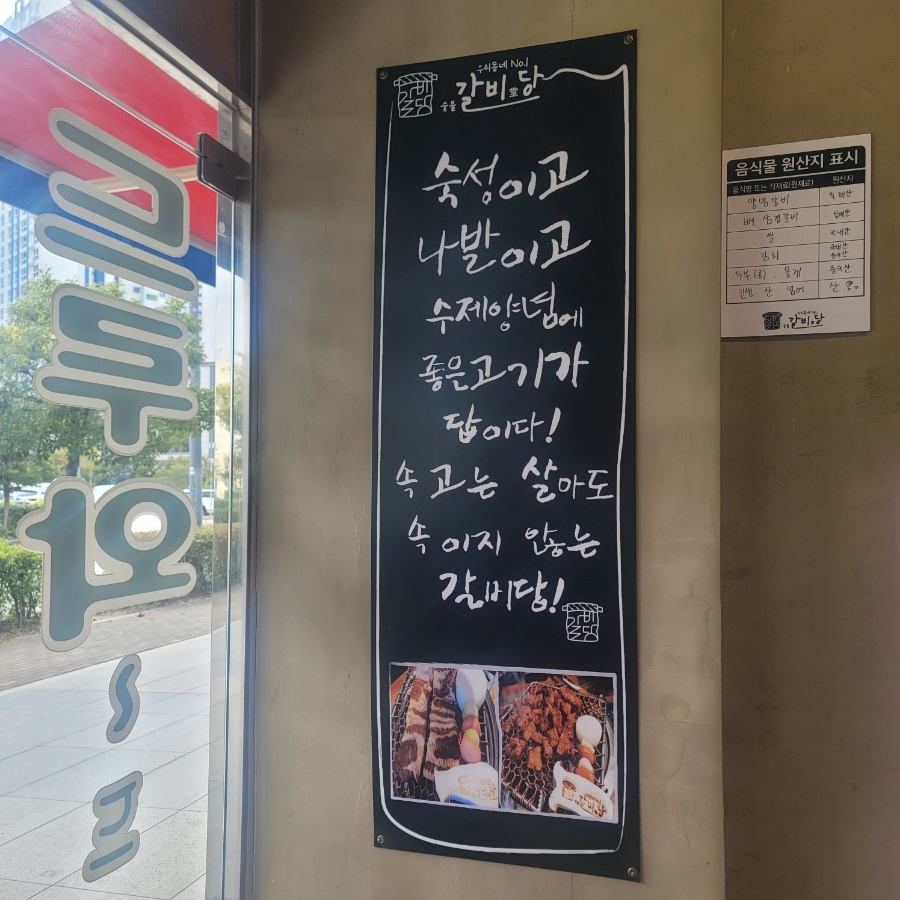 우리동네 No.1
숯불 갈비堂당
갈비당
숙성이고
나발이고
수제양념에
좋은고기가
답이다!
속고는 살아도
속이지 않는
갈비당!
갈비당
음식물 원산지 표시
음식명 또는 식재료(원재료) 원산지
양념갈비
뼈 삼겹갈비
쌀 국내산
김치 국내산 중국산
두부(콩), 꽃게 중국산
민생 산
갈비당